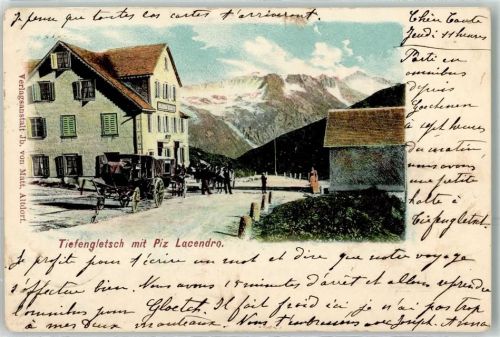 Je pense que toutes ces cartes t'arriveront
Chère Tante
Jeudi 11 heures
Partis en
omnibus
depuis
Goeschenen
à sept heures
du matin
nous avons
une petite
halte à
Tiefengletsch.
Verlagsanstalt Jb. von Matt, Altdorf.
Tiefengletsch mit Piz Lacendro.
Je profite pour t'écrire un mot et dire que notre voyage
s'effectue bien. Nous avons 15 minutes d'arrêt et allons reprendre
l'omnibus pour Gletch. Il fait froid ici je n'ai pas trop
à mes deux manteaux. Nous t'embrassons avec Joseph. Anna